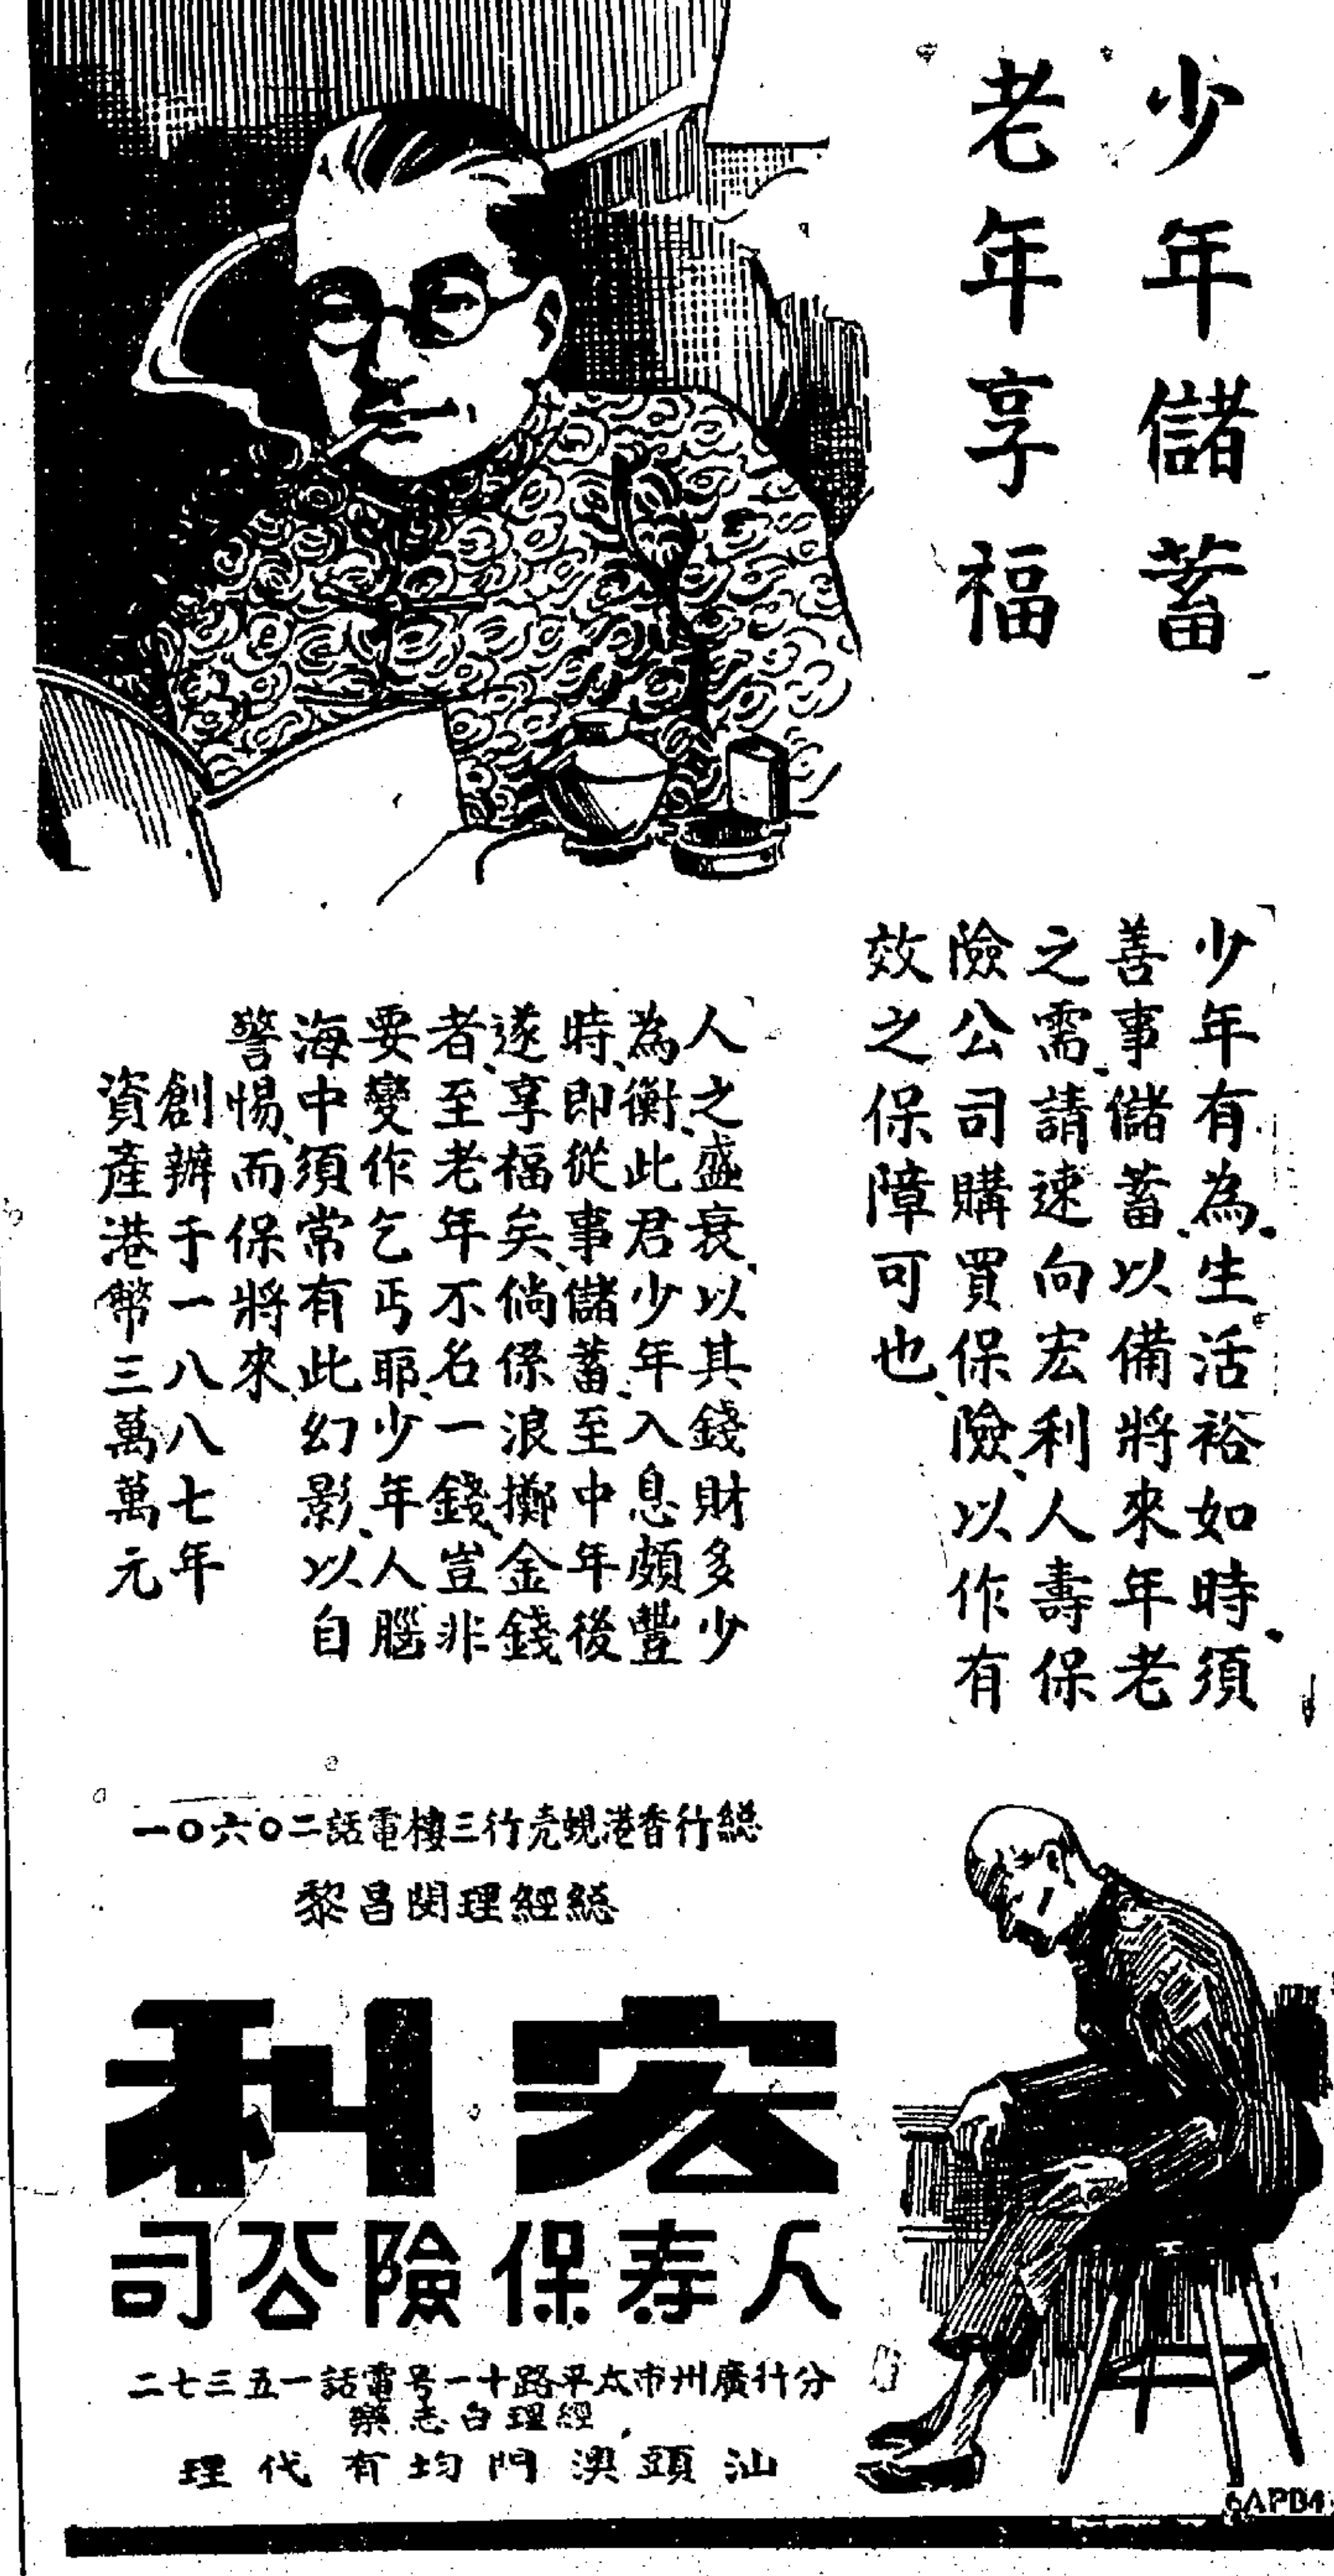 少年儲蓄
老年享福
少年有為.生活裕如時.須
善事儲蓄.以備將來年老
之需.請速向宏利人壽保
險公司購買保險、以作有
效之保障可也、
人之盛衰、以其錢財多少
為衡、此君少年入息頗豐
時、即從事儲蓄、至中年後
遂享福矣、倘係浪擲金錢
者、至老年不名一錢、豈非
要變作乞丐耶、少年人腦
海中須常有此幻影、以自
警惕、而保將來、
創辦于一八八七年
資產港幣三萬萬元
總行香港蜆壳行三樓電話二〇六〇一
總經理関昌黎
宏利
人寿保險公司
分行廣州市太平路十一号電話一五三七二
經理白志榮
汕頭澳門均有代理
6APB4